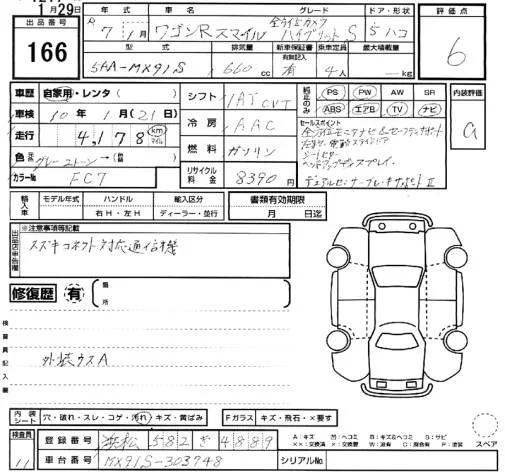 1月29日
出品番号 166
年式 車名 グレード ドア・形状 評価点
R 7 1月 ワゴンRスマイル 全方位カメラ ハイブリッドS 5 ハコ 6
型式 排気量 新車保証書 乗車定員 最大積載量
有無記入
5AA-MX91S 660cc 有 4人 kg
車歴 自家用・レンタ( )
車検 10年 1月(21日)
走行 4,178 km マイル
色 グレー2トーン→( )
カラーNo FC7
シフト 1AT CVT
冷房 AAC
燃料 ガソリン
リサイクル料金 8390円
純正のみ PS PW AW SR
ABS エアB TV ナビ
内装評価 a
セールスポイント
全方位モニタナビ&セーフティサポート
シートヒーター
ヘッドアップディスプレイ
デュアルセンサーブレーキサポートⅡ
輸入車 モデル年式 ハンドル 輸入区分
年 右H・左H ディーラー・並行
書類有効期限
月 日迄
出品店申告欄 ※注意事項等記載
スズキコネクト対応通信機
修復歴 有 箇所
検査員記入欄
外装ウスA
内装シート 穴・破れ・スレ・コゲ・汚れ・キズ・黄ばみ
Fガラス キズ・飛石・×要す
検査員 11
登録番号 浜松 582 さ 4889
車台番号 MX91S-303748
シリアルNo
A:キズ U:ヘコミ B:キズ&ヘコミ S:サビ
××:交換済 ×:要交換 W:波 C:腐食 P:塗装
スペア